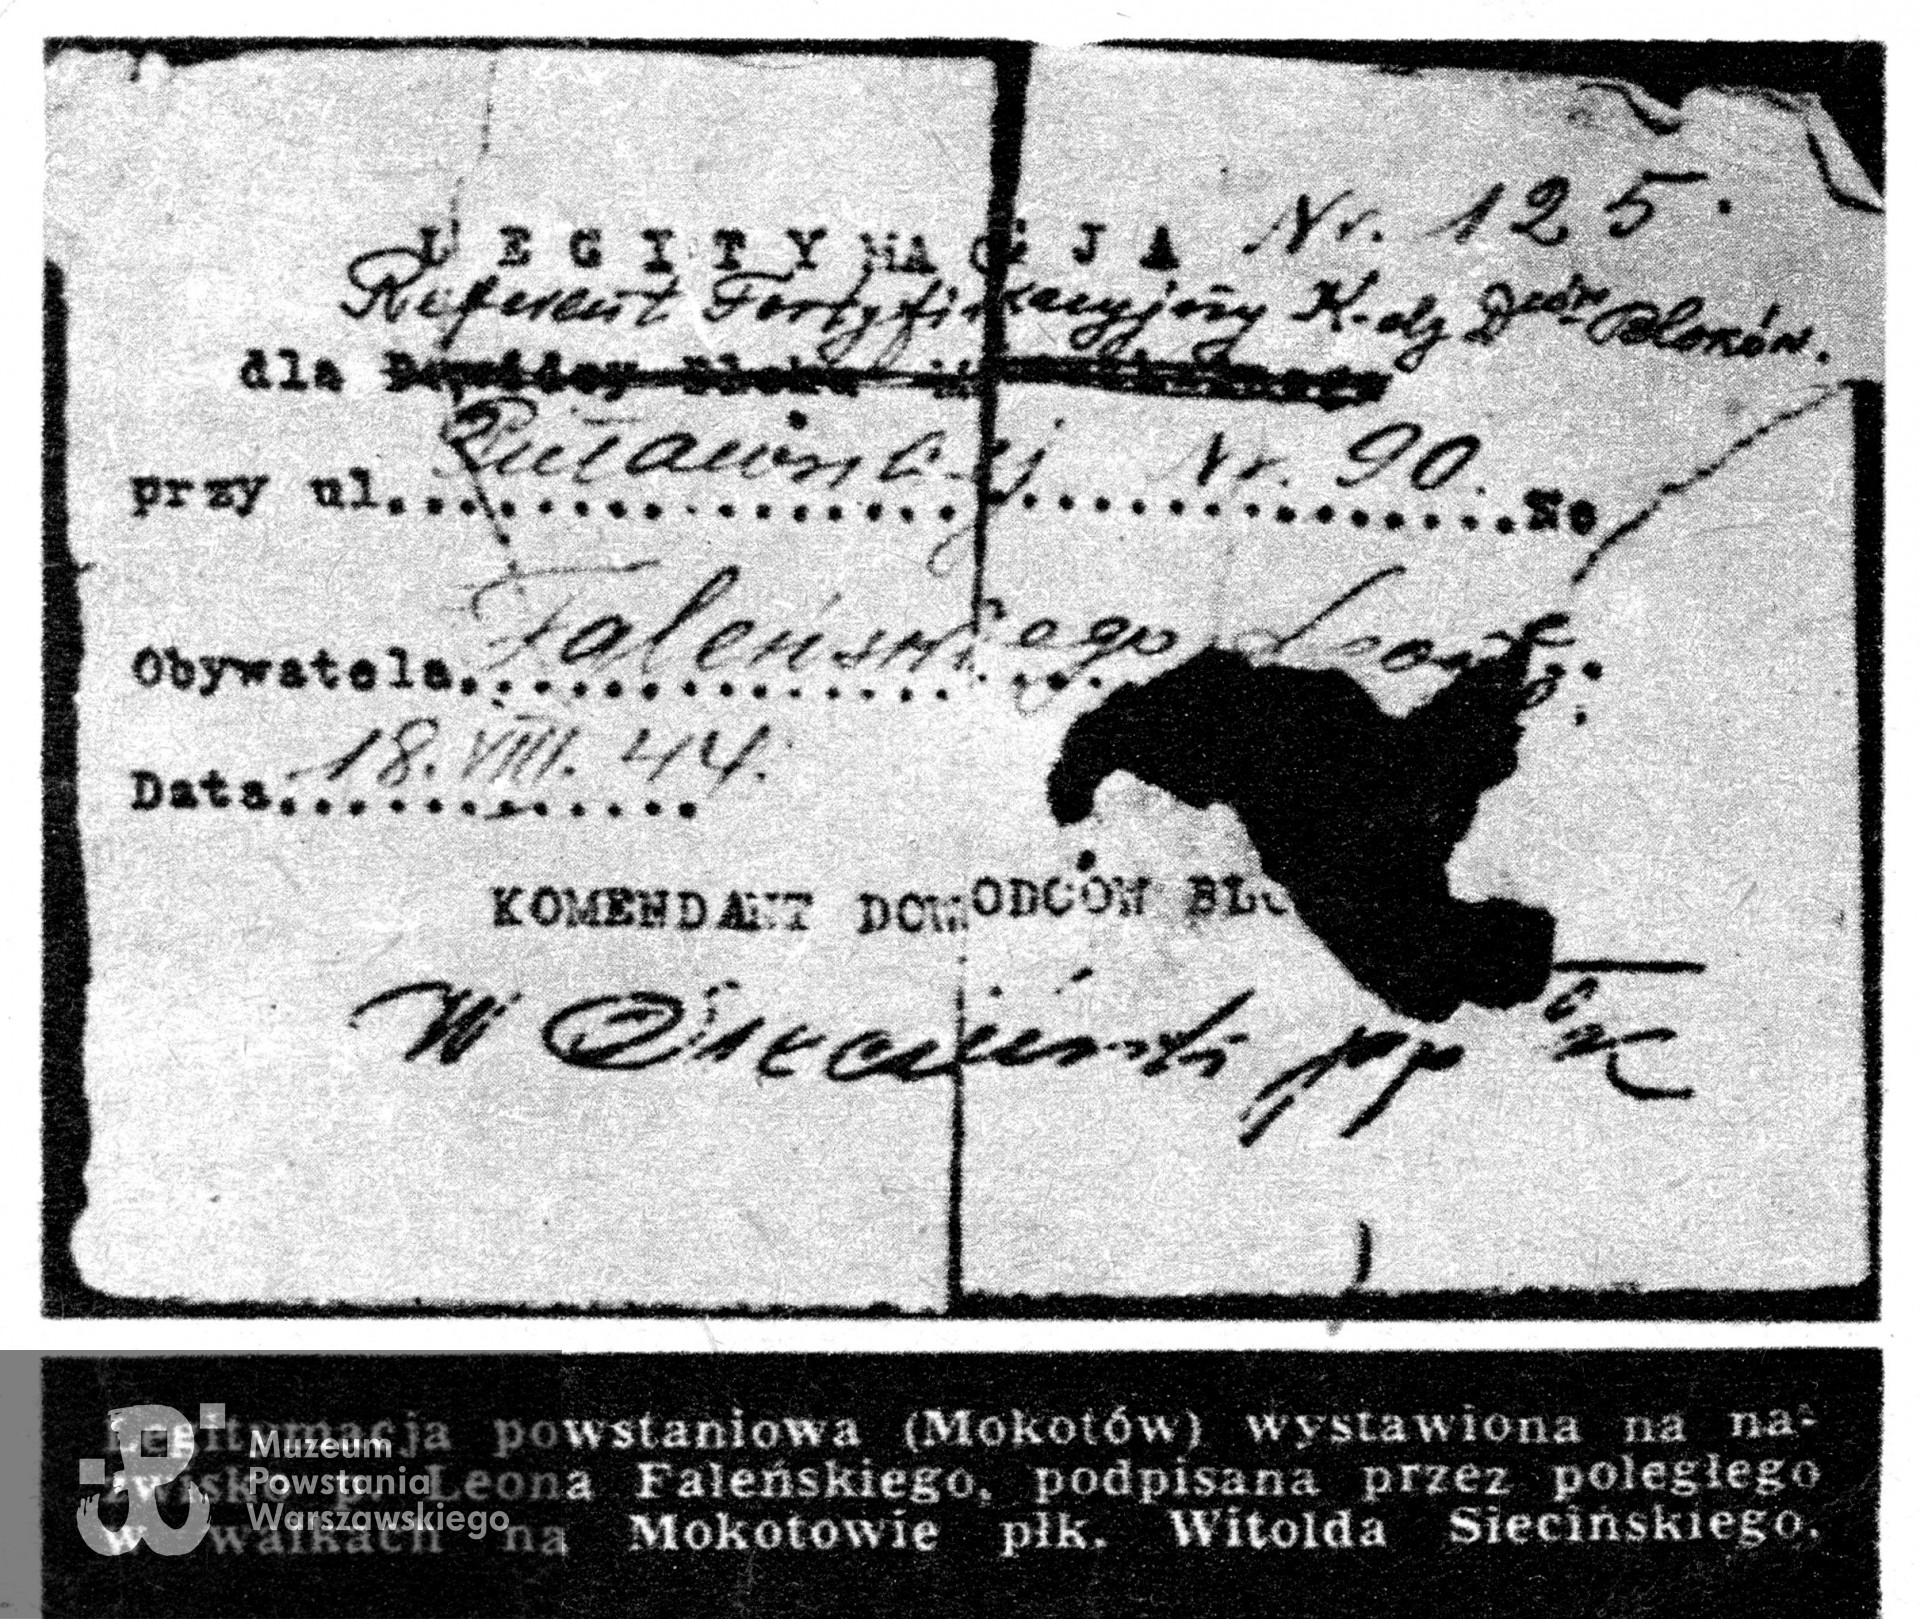 LEGITYMACJA Nr. 125.
Referent Fortyfikacyjny K-dy Dców Bloków.
dla
przy ul. Puławskiej Nr. 90. Nr
Obywatela Faleńskiego Leona
Data 18.VIII.44.
KOMENDANT DOWODCÓW BLO
W Sieciński ppłk
Legitymacja powstaniowa (Mokotów) wystawiona na na-
zwisko p. Leona Faleńskiego, podpisana przez poległego
w walkach na Mokotowie płk. Witolda Siecińskiego.
Muzeum
Powstania
Warszawskiego